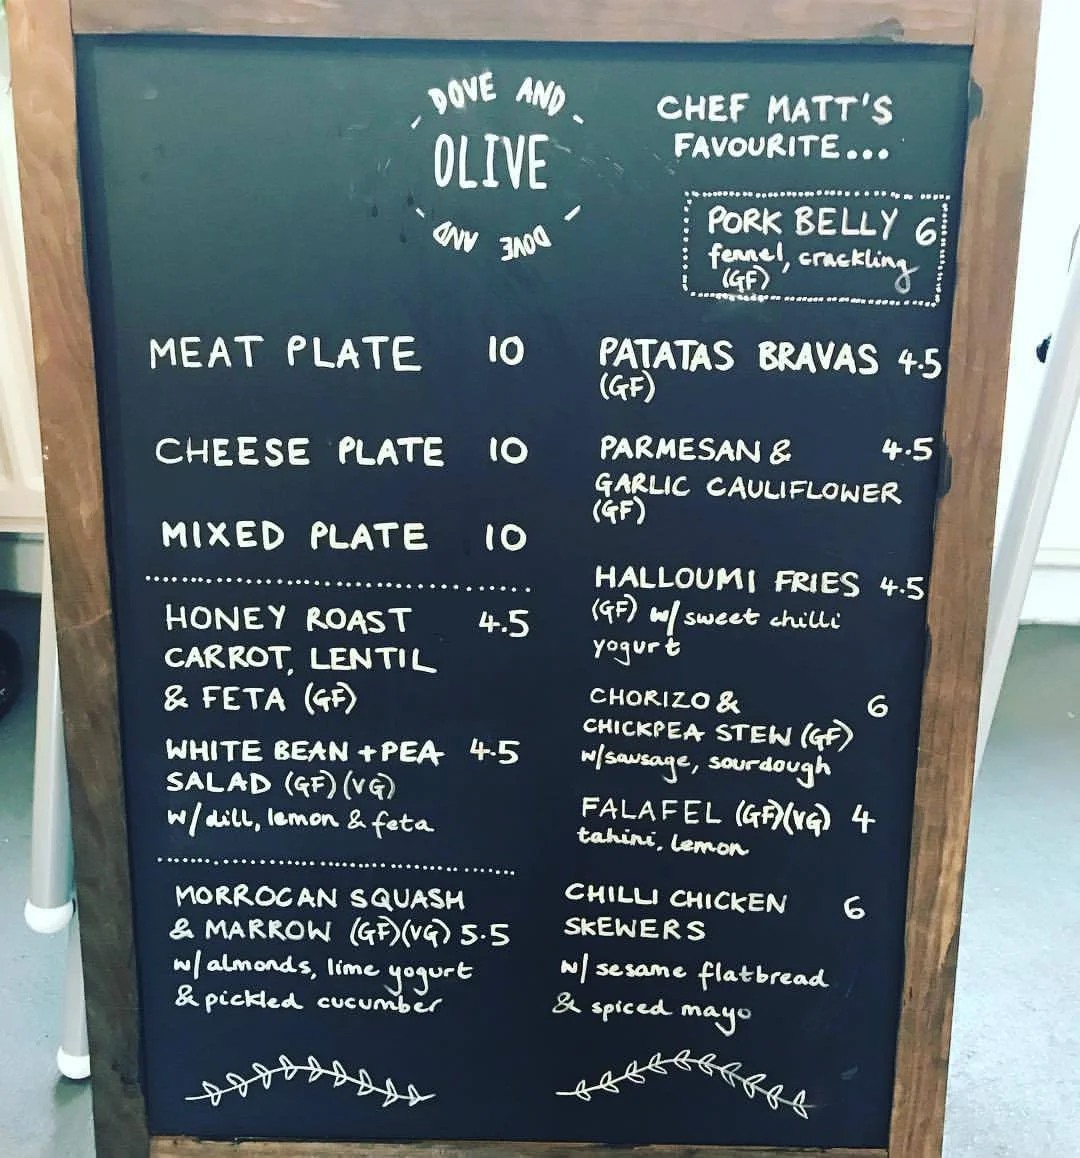 DOVE AND
OLIVE
DOVE AND
CHEF MATT'S
FAVOURITE...
PORK BELLY 6
fennel, crackling
(GF)
MEAT PLATE 10
CHEESE PLATE 10
MIXED PLATE 10
HONEY ROAST 4.5
CARROT, LENTIL
& FETA (GF)
WHITE BEAN + PEA 4.5
SALAD (GF) (VG)
w/ dill, lemon & feta
MORROCAN SQUASH
& MARROW (GF)(VG) 5.5
w/ almonds, lime yogurt
& pickled cucumber
PATATAS BRAVAS 4.5
(GF)
PARMESAN & 4.5
GARLIC CAULIFLOWER
(GF)
HALLOUMI FRIES 4.5
(GF) w/ sweet chilli
yogurt
CHORIZO & 6
CHICKPEA STEW (GF)
w/sausage, sourdough
FALAFEL (GF)(VG) 4
tahini, lemon
CHILLI CHICKEN 6
SKEWERS
w/ sesame flatbread
& spiced mayo